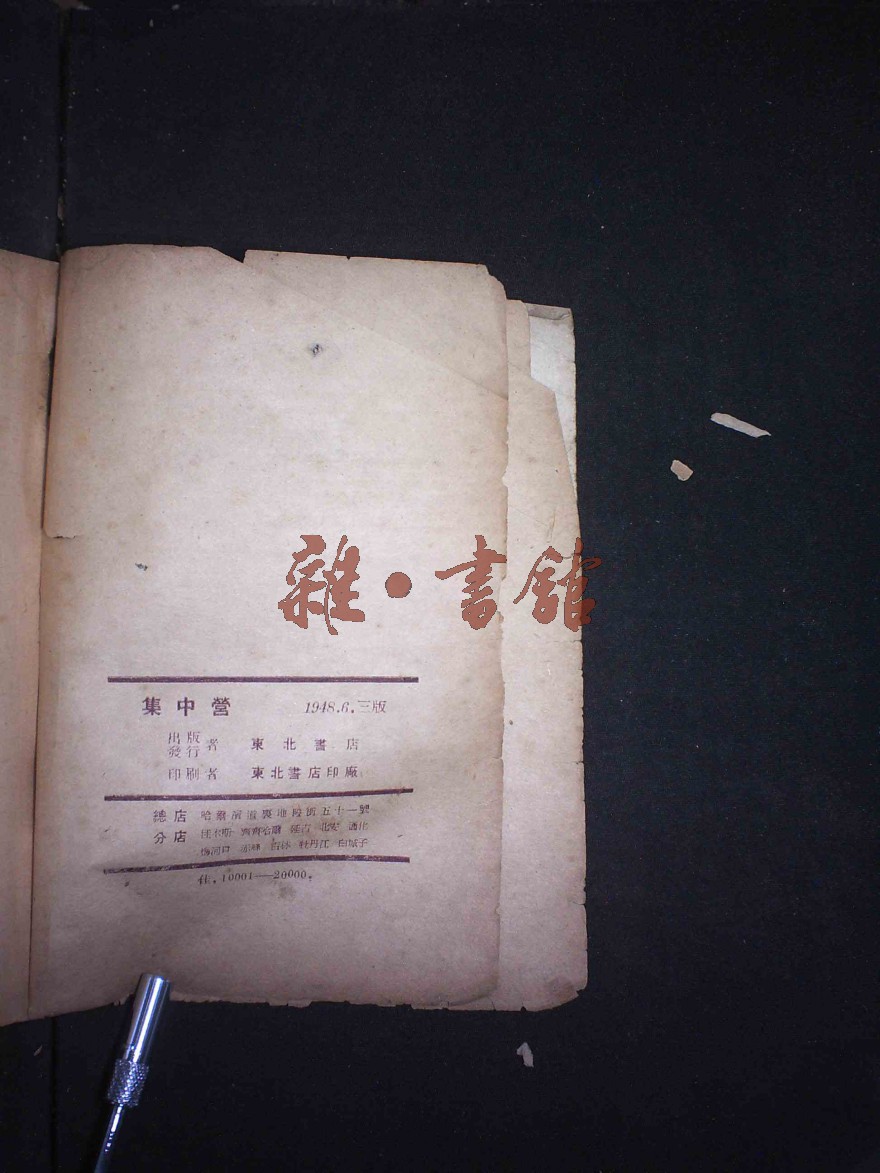 雜·書館
集中營 1948.6.三版
出版
發行者 東北書店
印刷者 東北書店印廠
總店 哈爾濱道裏地段街五十一號
分店 佳木斯 齊齊哈爾 延吉 北安 通化
牡丹江 白城子
佳.10001—20000.